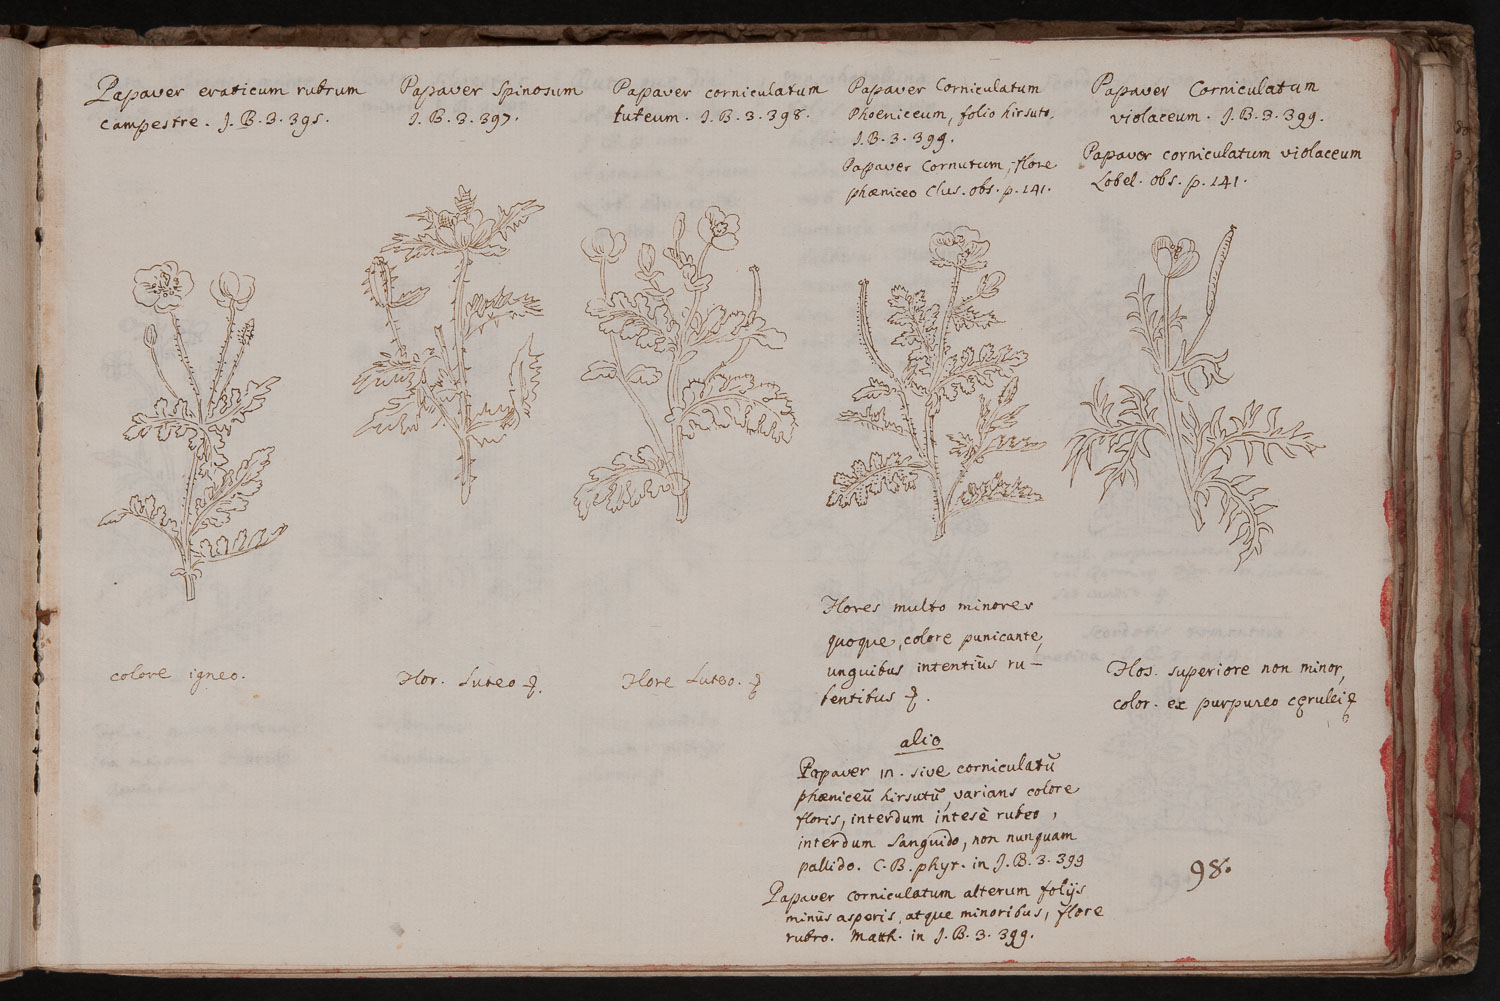 Papaver eraticum rubrum
campestre. J. B. 3. 395.
Papaver Spinosum
J. B. 3. 397.
Papaver corniculatum
luteum. J. B. 3. 398.
Papaver Corniculatum
Phoeniceum, folio hirsuto.
J. B. 3. 399.
Papaver Cornutum, flore
phæniceo Clus. obs. p. 141.
Papaver Corniculatum
violaceum. J. B. 3. 399.
Papaver corniculatum violaceum
Lobel. obs. p. 141.
colore igneo.
Flor. Luteo
Flore Luteo.
Flores multo minores
quoque, colore punicante,
unguibus intentiùs ru-
bentibus
Flos. superiore non minor,
color. ex purpureo cęrulei
alio
Papaver in. sive corniculatũ
phæniceũ hirsutũ, varians colore
floris, interdum intesè rubeo,
interdum Sanguido, non nunquam
pallido. C. B. phyt. in J. B. 3. 399
Papaver corniculatum alterum folijs
minùs asperis, atque minoribus, flore
rubro. Matth. in J. B. 3. 399.
98.